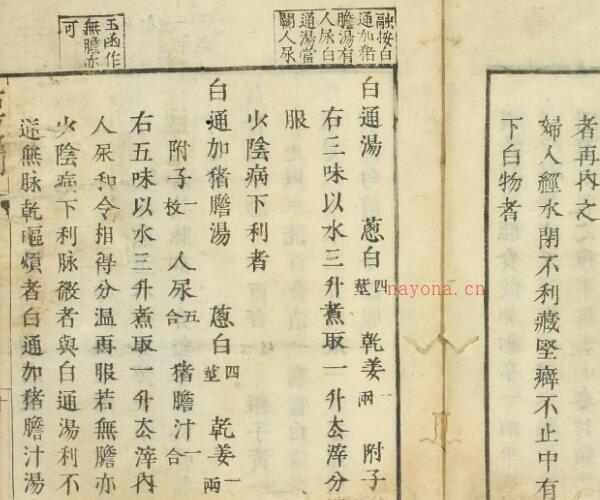 者再内之
婦人經水閉不利藏堅癖不止中有
下白物者
融按白
通加猪
膽湯有
人尿白
通湯當
闕人尿
白通湯 葱白四莖 乾姜一兩 附子
右三味以水三升煮取一升去滓分
服
少陰病下利者
白通加猪膽湯 葱白四莖 乾姜一兩
附子一枚 人尿五合 猪膽汁一合
右五味以水三升煮取一升去滓内
人尿和令相得分温再服若無膽亦
玉函作
無膽亦
可
少陰病下利脉微者與白通湯利不
逆無脉乾嘔煩者白通加猪膽汁湯
nayona.cn